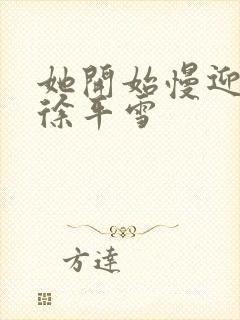 她開始慢迎
徐平雪
方達